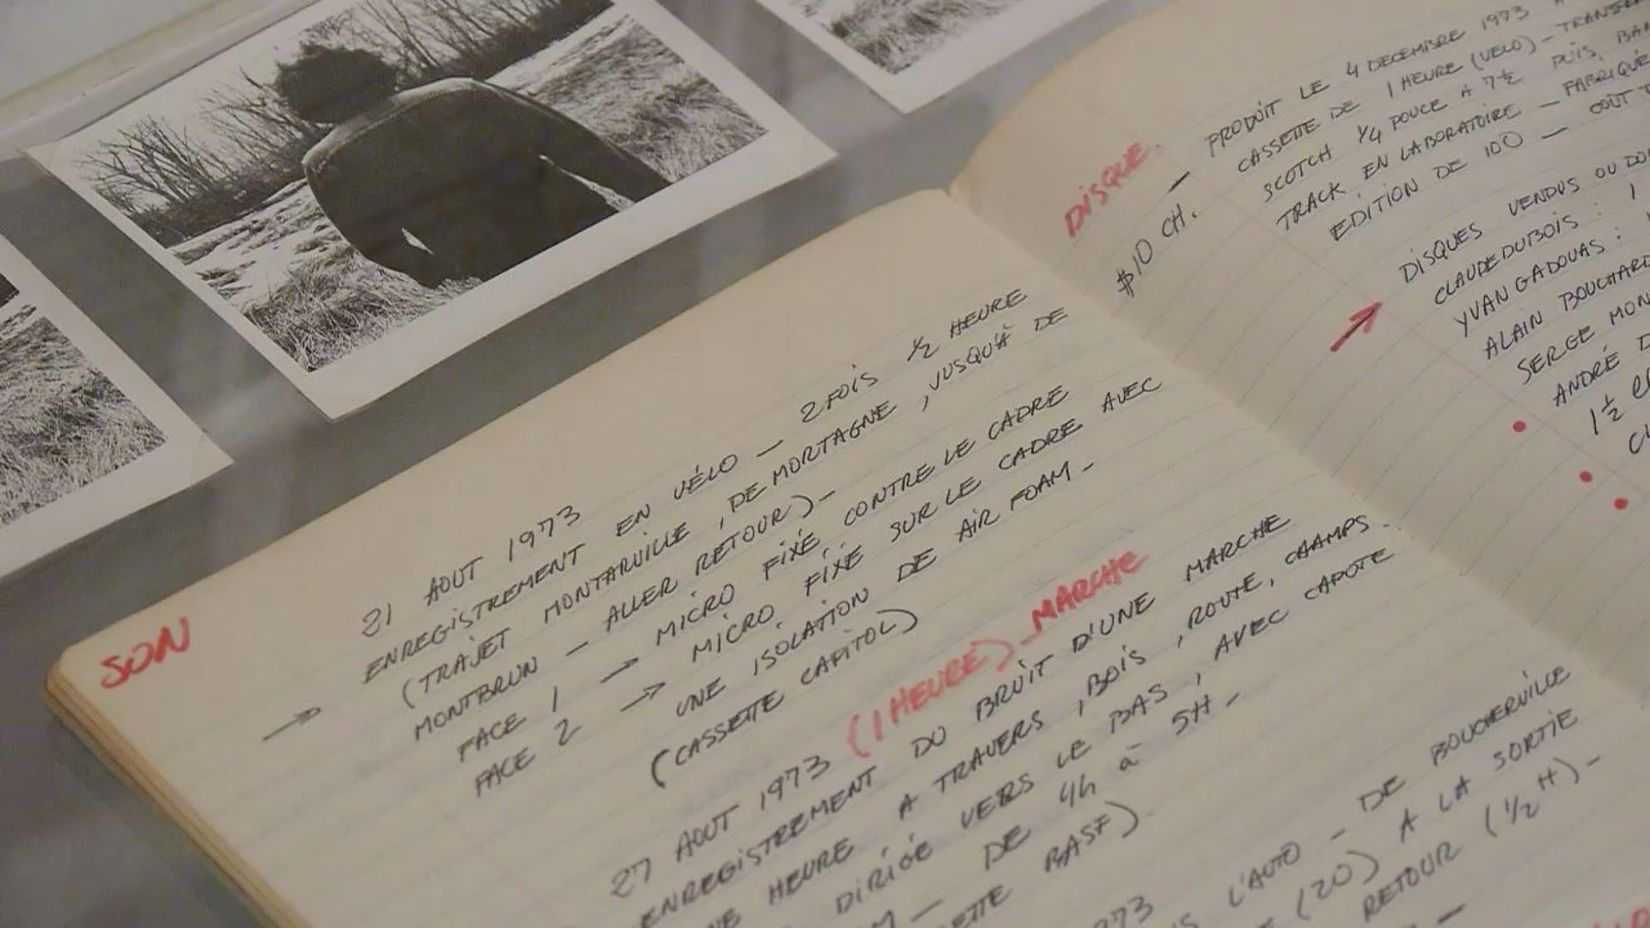 SON
21 AOUT 1973
ENREGISTREMENT EN VÉLO — 2 FOIS 1/2 HEURE
(TRAJET MONTARVILLE, DE MORTAGNE, JUSQU'À DE
MONTBRUN — ALLER RETOUR) —
FACE 1 → MICRO FIXÉ CONTRE LE CADRE
FACE 2 → MICRO FIXÉ SUR LE CADRE AVEC
UNE ISOLATION DE AIR FOAM —
(CASSETTE CAPITOL)
27 AOUT 1973 (1 HEURE) — MARCHE
ENREGISTREMENT DU BRUIT D'UNE MARCHE
HEURE A TRAVERS, BOIS, ROUTE, CHAMPS
DIRIGÉ VERS LE BAS, AVEC CAPOTE
— DE 4H à 5H —
BASF)
1973
L'AUTO — DE BOUCHERVILLE
(20) A LA SORTIE
RETOUR (1/2 H) —
DISQUE
— PRODUIT LE 4 DECEMBRE 1973
$10 CH. CASSETTE DE 1 HEURE (VELO) —
SCOTCH 1/4 POUCE A 7 1/2 PUIS
TRACK EN LABORATOIRE — FABRIQUÉ
EDITION DE 100 — COUT
→ DISQUES VENDUS OU
CLAUDE DUBOIS : 1
YVAN GADOUAS :
ALAIN BOUCHARD
SERGE
ANDRÉ
1 1/2